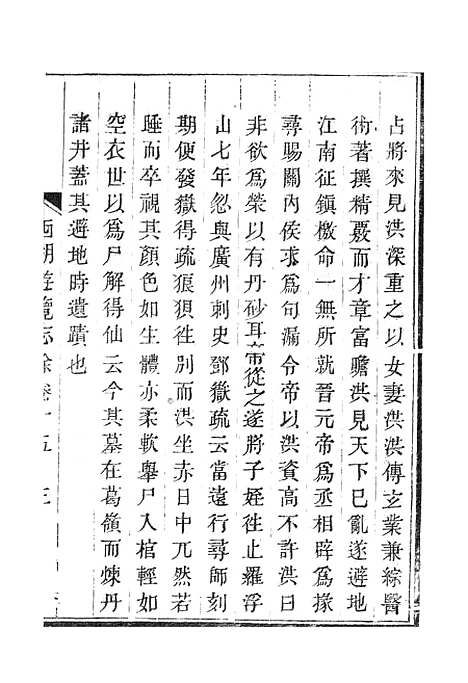 占將來見洪深重之以女妻洪洪傳玄業兼綜醫
術著撰精覈而才章富贍洪見天下已亂遂避地
江南征鎮檄命一無所就晉元帝爲丞相辟爲掾
尋賜關內侯求爲句漏令帝以洪資高不許洪曰
非欲爲榮以有丹砂耳帝從之遂將子姪徃止羅浮
山七年忽與廣州刺史鄧嶽疏云當遠行尋師刻
期便發嶽得疏狼狽徃別而洪坐赤日中兀然若
睡而卒視其顏色如生體亦柔軟舉尸入棺輕如
空衣世以爲尸解得仙云今其墓在葛嶺而煉丹
諸井蓋其避地時遺蹟也
西湖遊覽志餘卷十五 三